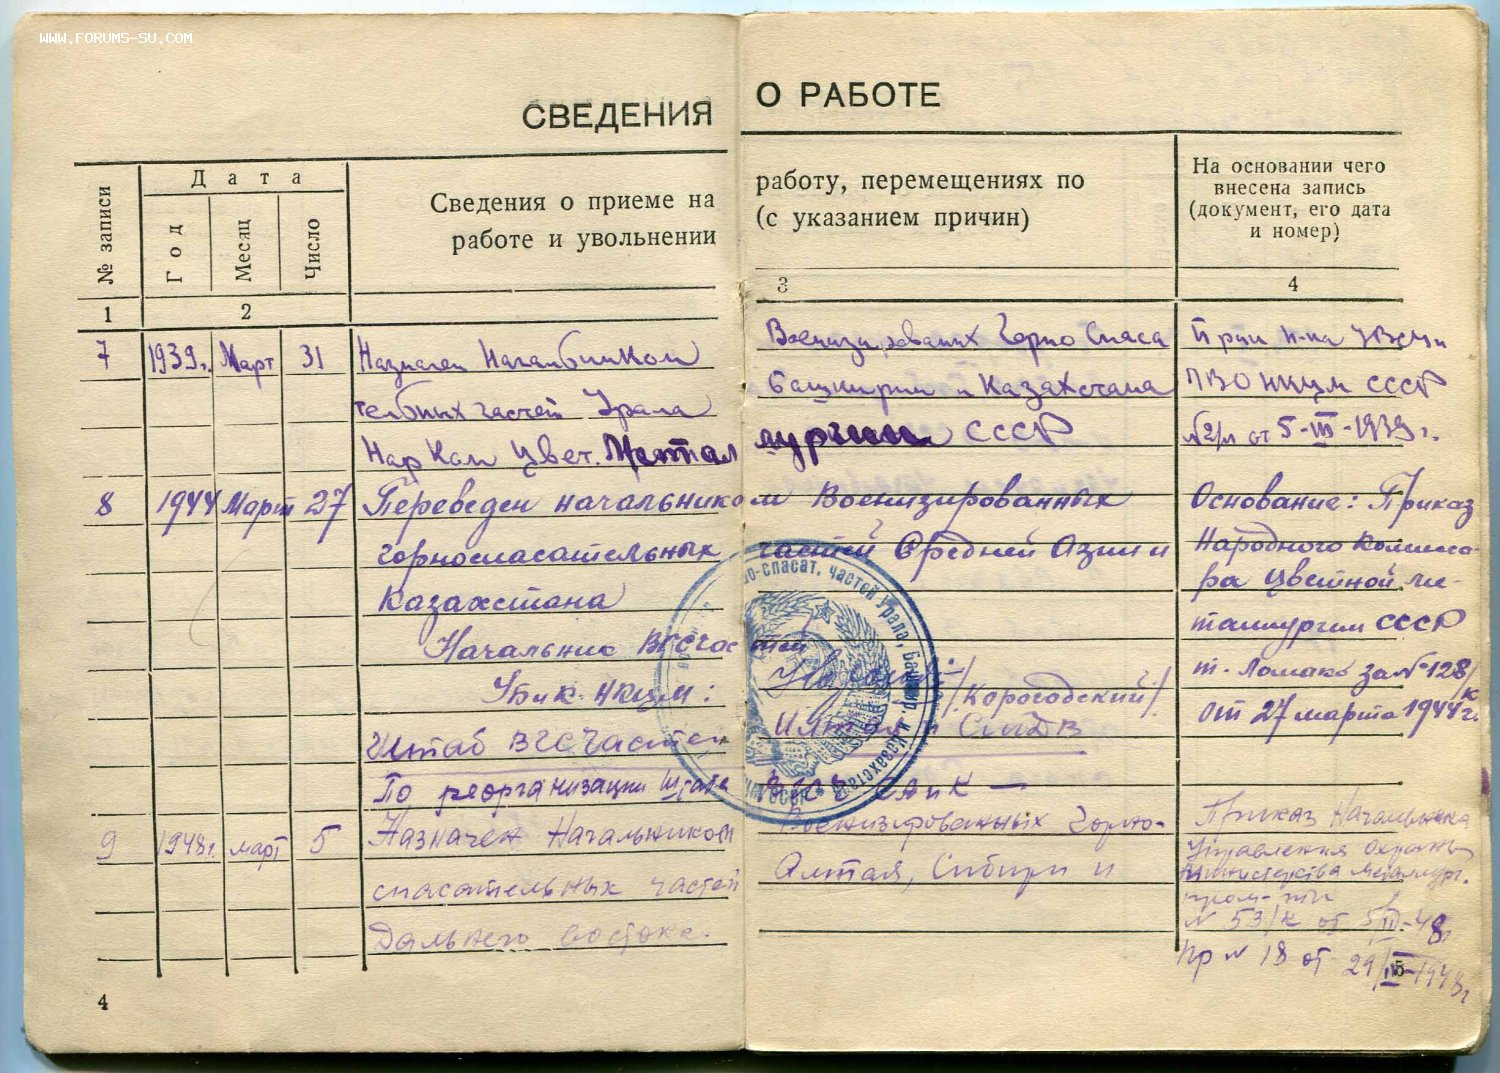 WWW.FORUMS-SU.COM
СВЕДЕНИЯ О РАБОТЕ
№ записи
Дата
Год
Месяц
Число
Сведения о приеме на работу, перемещениях по
работе и увольнении (с указанием причин)
На основании чего
внесена запись
(документ, его дата
и номер)
1 2 3 4
7 1939г. Март 31 Назначен Военизированных Горно Спаса
тельных частей Урала Башкирии и Казахстана
Нар Ком Цвет. Металлургии СССР
ПВО НКЦМ СССР
от 5-III-1939г.
8 1944 Март 27 Переведен начальником Военизированных
горноспасательных частей Средней Азии и
Казахстана
Начальник ВГСЧастей
УБиК НКЦМ: /Корогодский/
Основание: Приказ
Народного Комисса-
ра Цветной ме-
таллургии СССР
т. Ломако за №128/к
от 27 марта 1944г.
Штаб ВГСЧастей Алтая и СиДВ
По реорганизации Штаба ВГСЧ САиК —
9 1948г. март 5 Назначен Начальником Военизированных Горно-
спасательных частей Алтая, Сибири и
Дальнего Востока.
Приказ Начальника
Управления Охраны
Министерства Металлург.
пром-сти
№ 53/к от 5/III-48г
Пр № 18 от 29/III-1948г
спасат. частей Урала, Башкир. и Казахстана
4
5